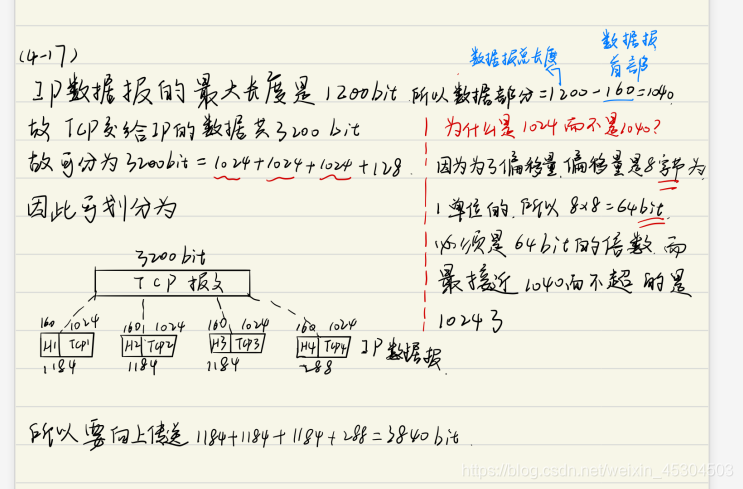 (4-17)
数据报总长度
数据报
首部
IP数据报的最大长度是1200bit 所以数据部分=1200-160=1040.
故TCP交给IP的数据共3200bit
故可分为3200bit=1024+1024+1024+128.
因此可划分为
为什么是1024而不是1040?
因为为了偏移量,偏移量是8字节为
1单位的,所以8×8=64bit
必须是64bit的倍数,而
最接近1040而不超的是
1024了
3200bit
TCP报文
160 1024 160 1024 160 1024 160 1024
H1 TCP1 H2 TCP2 H3 TCP3 H4 TCP4 IP数据报.
1184 1184 1184 288
所以要向上传送1184+1184+1184+288=3840bit.
https://blog.csdn.net/weixin_45304503